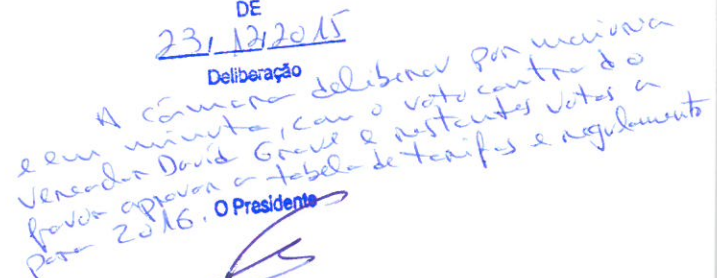 DE
23/12/2015
Deliberação
A câmara deliberou por maioria
e em minuta, com o voto contra do
vereador David Grave e restantes votos a
favor aprovar a tabela de tarifas e regulamento
para 2016.
O Presidente